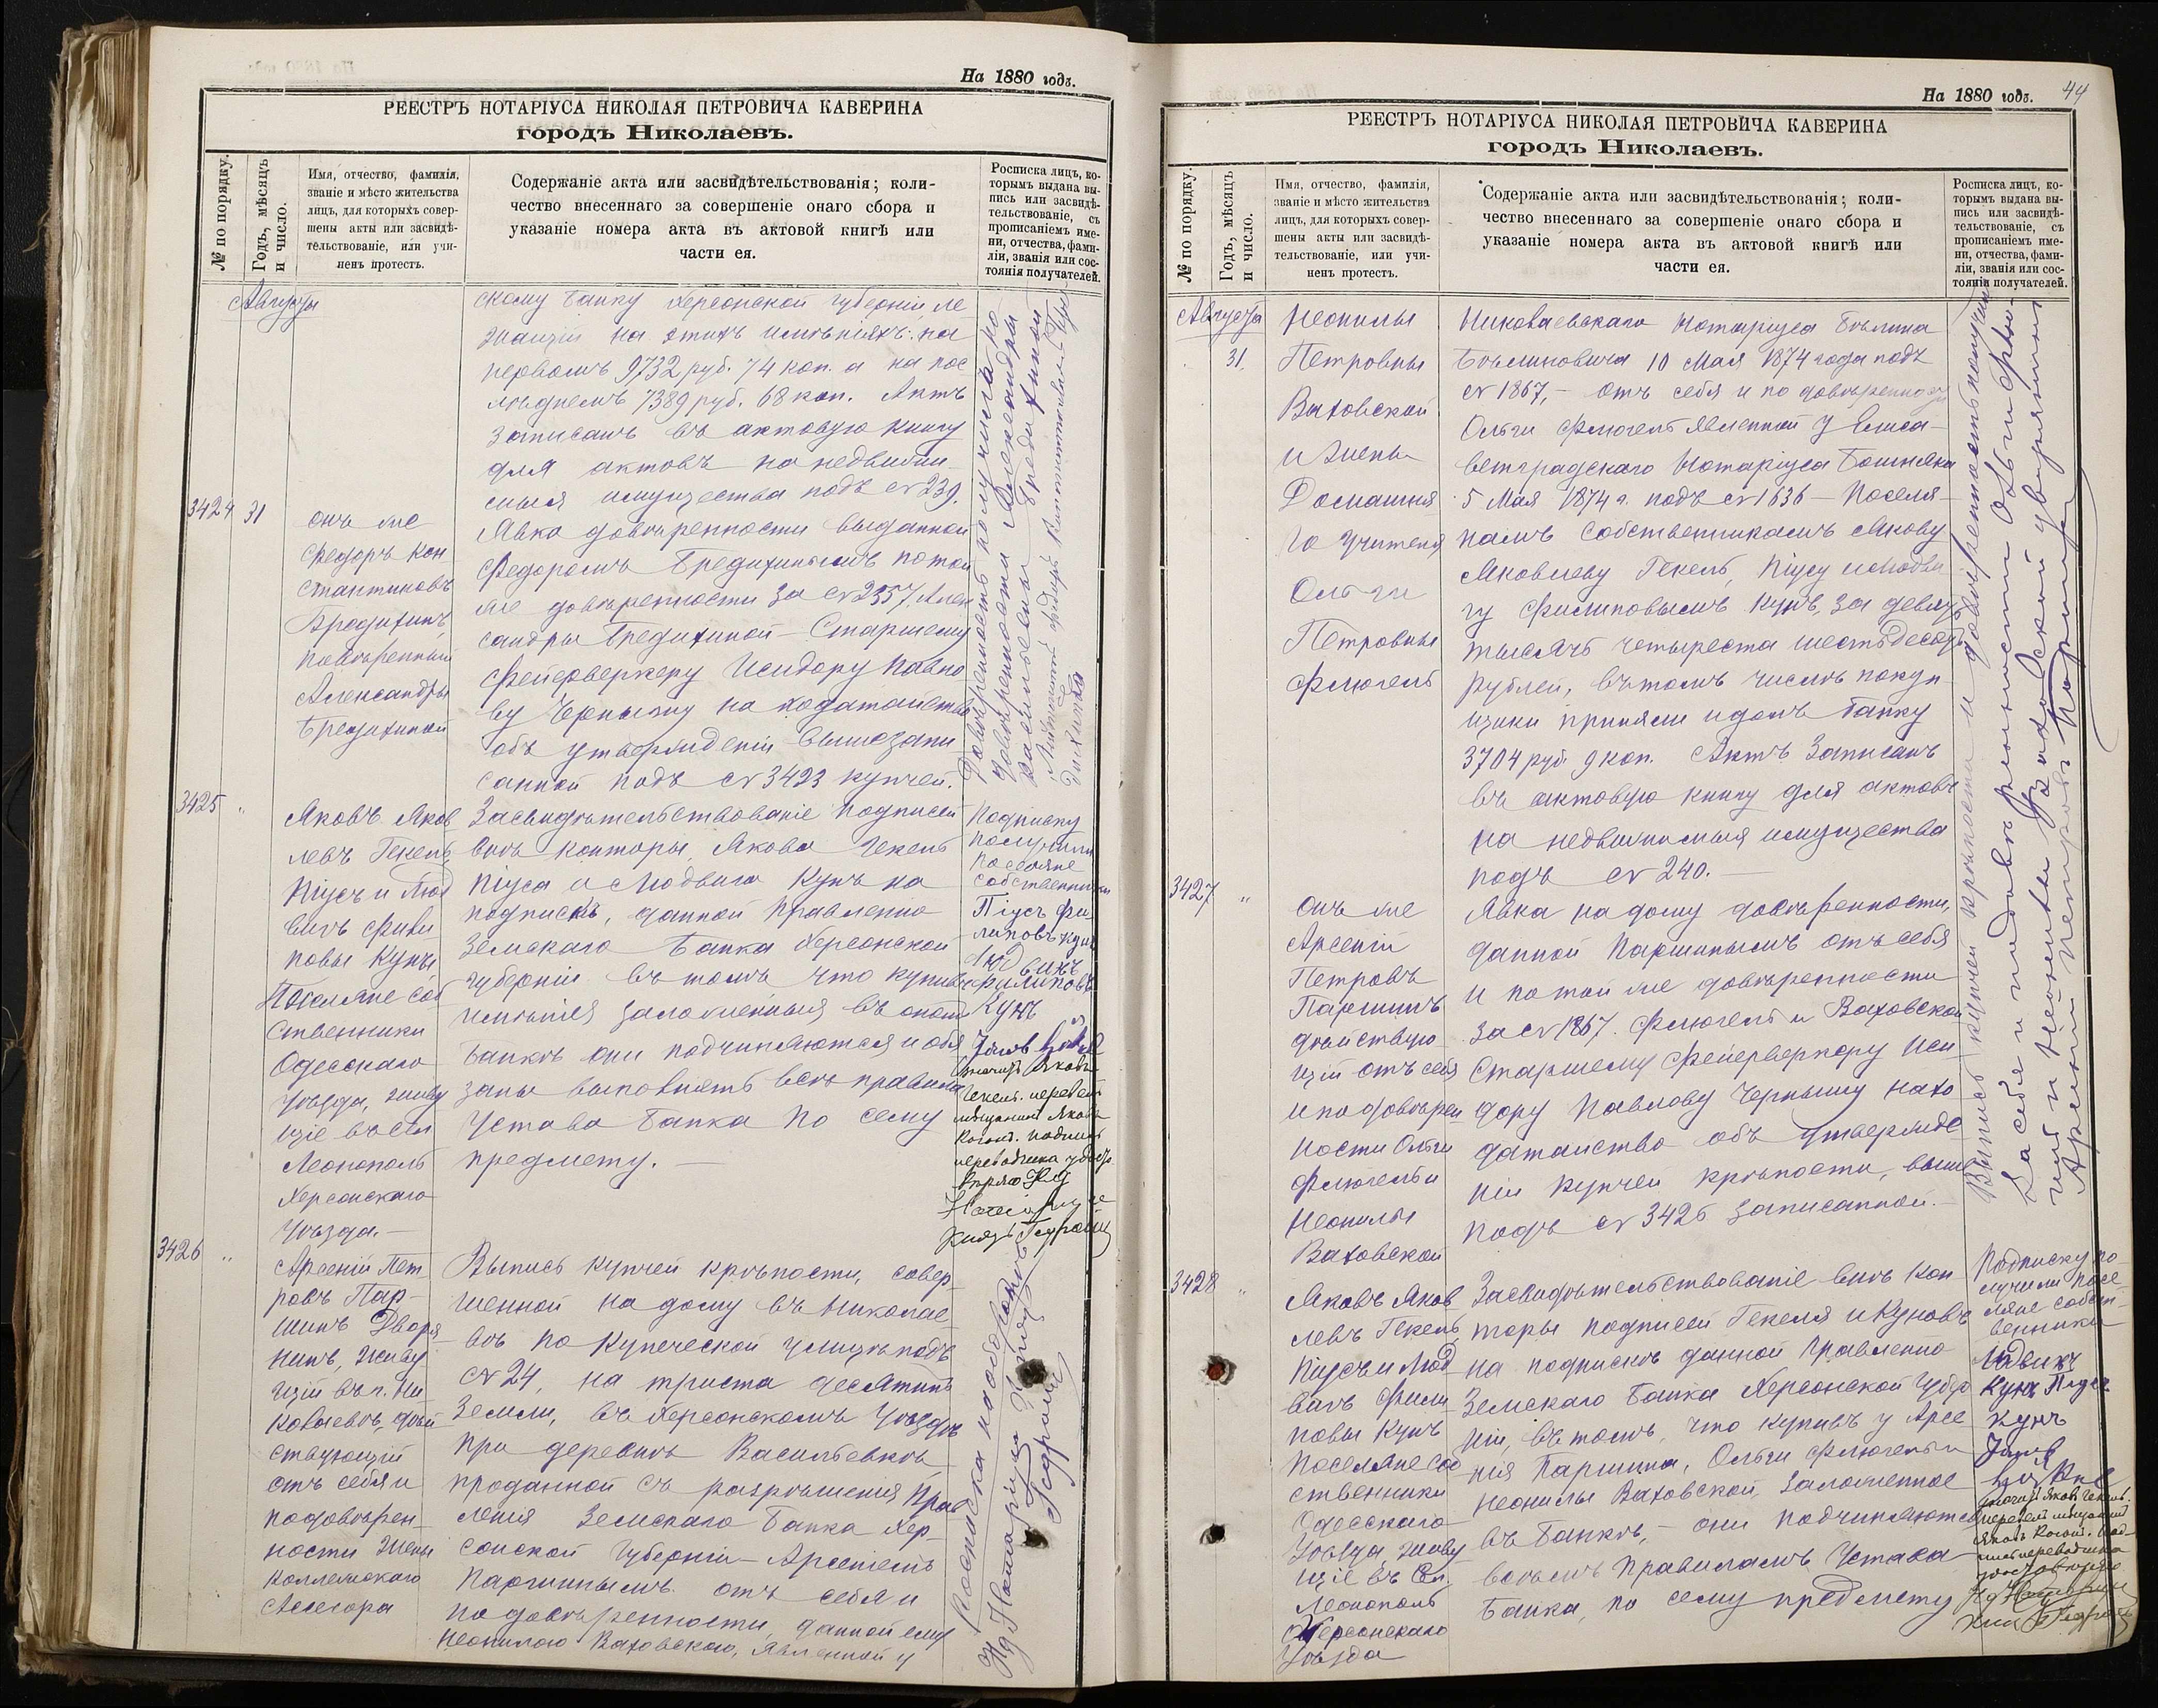 На 1880 годъ.
РЕЕСТРЪ НОТАРІУСА НИКОЛАЯ ПЕТРОВИЧА КАВЕРИНА
городъ Николаевъ.
№ по порядку.
Годъ, мѣсяцъ
и число.
Имя, отчество, фамилія,
званіе и мѣсто жительства
лицъ, для которыхъ совер-
шены акты или засвидѣ-
тельствованіе, или учи-
ненъ протестъ.
Содержаніе акта или засвидѣтельствованія; коли-
чество внесеннаго за совершеніе онаго сбора и
указаніе номера акта въ актовой книгѣ или
части ея.
Росписка лицъ, ко-
торымъ выдана вы-
пись или засвидѣ-
тельствованіе, съ
прописаніемъ име-
ни, отчества, фами-
ліи, званія или сос-
тоянія получателей.
Августа
скому банку Херсонской губерніи, ле
жащій на этихъ имѣніяхъ: на
первомъ 9732 руб. 74 коп. а на пос
лѣднемъ 7389 руб. 68 коп. Актъ
записанъ въ актовую книгу
для актовъ на недвижи-
мыя имущества подъ № 239.
3424 31
онъ же
Федоръ Кон
стантиновъ
Бредихинъ,
повѣренный
Александры
Бредихиной
Явка довѣренности выданной
Федоромъ Бредихинымъ по той
же довѣренности за № 2357, Алек
сандры Бредихиной – Старшему
Фейерверкеру Исидору Павло
ву Чернышу на ходатайство
объ утвержденіи вышезапи
санной подъ № 3423 купчей.
Довѣренность получилъ по
довѣренности Александры
Васильевны Бредихиной
3425 "
Яковъ Яков
левъ Гекель,
Піусъ и Люд
вигъ Фили
повы Кунъ
Поселяне соб
ственники
Одесскаго
уѣзда, живу
щіе въ сел
Леонополь
Херсонскаго
уѣзда.–
Засвидѣтельствованіе подписей
внѣ конторы, Якова Гекель
Піуса и Людвига Кунъ на
подпискѣ, данной Правленію
Земскаго Банка Херсонской
губерніи въ томъ что купивъ
имѣнія заложенныя въ ономъ
банкѣ они подчиняются и обя
заны выполнять всѣ правила
Устава Банка по сему
предмету. –
Подписку
получили
поселяне
собственники
Піусъ Фи
липовъ Кунъ
Людвигъ
Филиповъ
Кунъ
3426 "
Арсеній Пет
ровъ Пар-
шинъ Дворя
нинъ, живу
щій въ г. Ни
колаевѣ, дѣй
ствующій
отъ себя и
по довѣрен-
ности жены
Коллежскаго
Асесора
Выпись купчей крѣпости, совер-
шенной на дому въ Николае
вѣ по Купеческой улицѣ подъ
№ 24, на триста десятинъ
земли, въ Херсонскомъ уѣздѣ
при деревнѣ Васильевкѣ
проданной съ разрѣшенія Прав
ленія Земскаго Банка Хер-
сонской губерніи – Арсеніемъ
Паршинымъ отъ себя и
по довѣренности, данной ему
Неонилою Ваховскою, явленной у
На 1880 годъ. 44
РЕЕСТРЪ НОТАРІУСА НИКОЛАЯ ПЕТРОВИЧА КАВЕРИНА
городъ Николаевъ.
№ по порядку.
Годъ, мѣсяцъ
и число.
Имя, отчество, фамилія,
званіе и мѣсто жительства
лицъ, для которыхъ совер-
шены акты или засвидѣ-
тельствованіе, или учи-
ненъ протестъ.
Содержаніе акта или засвидѣтельствованія; коли-
чество внесеннаго за совершеніе онаго сбора и
указаніе номера акта въ актовой книгѣ или
части ея.
Росписка лицъ, ко-
торымъ выдана вы-
пись или засвидѣ-
тельствованіе, съ
прописаніемъ име-
ни, отчества, фами-
ліи, званія или сос-
тоянія получателей.
Августа
31.
Неонилы
Петровны
Ваховской
и жены
Домашня
го учителя
Ольги
Петровны
Флюгель
Николаевскаго Нотаріуса Бѣлина
Бѣлиновича 10 Мая 1874 года подъ
№ 1867, – отъ себя и по довѣренности
Ольги Флюгель явленной у Елиса-
ветградскаго Нотаріуса Бошняка
5 Мая 1874 г. подъ № 1636 – Поселя-
намъ собственникамъ Якову
Яковлеву Гекель, Піусу и Людви
гу Филиповымъ Кунъ, за девять
тысячъ четыреста шестьдесятъ
рублей, въ томъ числѣ покуп
щики приняли и долгъ банку
3704 руб. 9 коп. Актъ записанъ
въ актовую книгу для актовъ
на недвижимыя имущества
подъ № 240.
Выпись купчей крѣпости и довѣренность получилъ
за себя и по довѣренности Ольги Флю-
гель и Неонилы Ваховской дворянинъ
Арсеній Петровъ Паршинъ
3427 "
онъ же
Арсеній
Петровъ
Паршинъ
дѣйствую
щій отъ себя
и по довѣрен
ности Ольги
Флюгель и
Неонилы
Ваховской
Явка на дому довѣренности,
данной Паршинымъ отъ себя
и по той же довѣренности
за № 1867. Флюгель и Ваховской
Старшему Фейерверкеру Иси
дору Павлову Чернышу на хо
датайство объ утвержде
ніи купчей крѣпости, выше
подъ № 3426 записанной. –
3428 "
Яковъ Яков
левъ Гекель,
Піусъ и Люд
вигъ Фили
повы Кунъ
Поселяне соб
ственники
Одесскаго
уѣзда, живу
щіе въ сел.
Леонополь
Херсонскаго
Уѣзда
Засвидѣтельствованіе внѣ кон
торы подписей Гекеля и Куновъ
на подпискѣ данной Правленію
Земскаго Банка Херсонской губер
ніи, въ томъ, что купивъ у Арсе
нія Паршина, Ольги Флюгель и
Неонилы Ваховской, заложенное
въ Банкѣ, – они подчиняются
всѣмъ Правиламъ Устава
Банка, по сему предмету
Подписку по
лучили посе
ляне собст-
венники
Людвигъ
Кунъ Піусъ
Кунъ